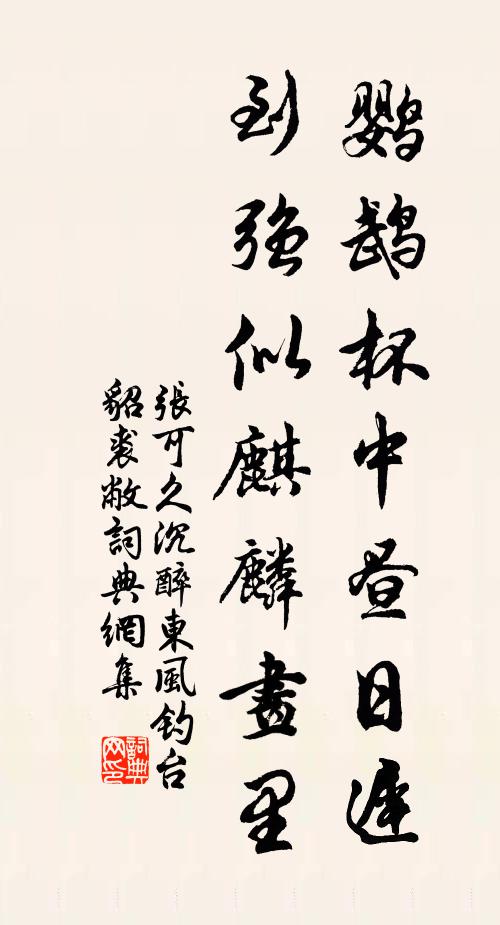 鸚鵡杯中昼日遲
到強似麒麟畫里
張可久沉醉東風钓台
貂裘敝詞典網集
詞典网印